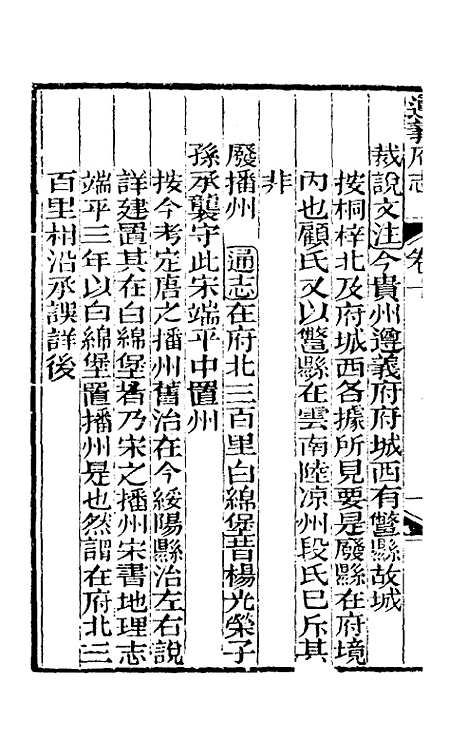 遵義府志 卷十
裁說文注今貴州遵義府府城西有鷩縣故城
按桐梓北及府城西各據所見要是廢縣在府境
內也顧氏又以鷩縣在雲南陸凉州段氏已斥其
非
廢播州 通志在府北三百里白綿堡昔楊光榮子
孫承襲守此宋端平中置州
按今考定唐之播州舊治在今綏陽縣治左右說
詳建置其在白綿堡者乃宋之播州宋書地理志
端平三年以白綿堡置播州是也然謂在府北三
百里相沿承誤詳後